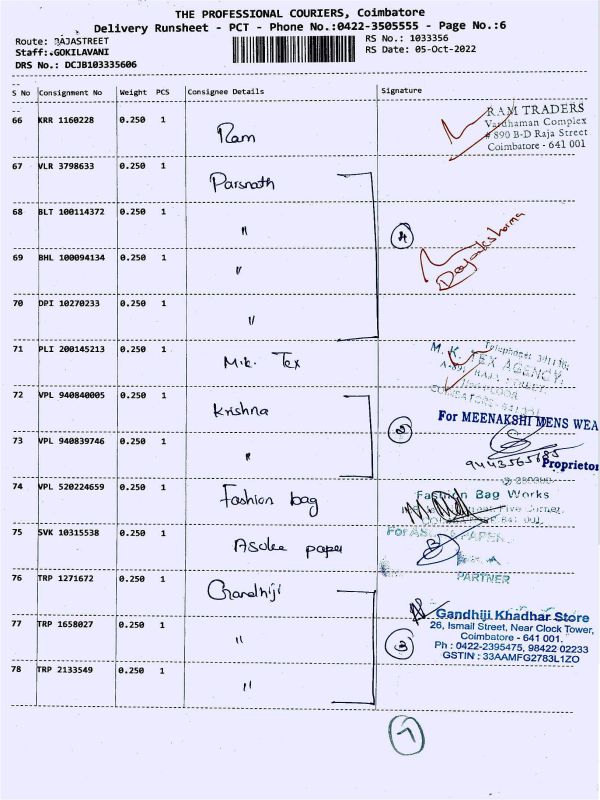 THE PROFESSIONAL COURIERS, Coimbatore
Delivery Runsheet - PCT - Phone No.:0422-3505555 - Page No.:6
Route: RAJASTREET
Staff: GOKILAVANI
DRS No.: DCJB103335606
RS No.: 1033356
RS Date: 05-Oct-2022
S No Consignment No Weight PCS Consignee Details Signature
66 KRR 1160228 0.250 1 Ram
RAM TRADERS
Vardhaman Complex
# 890 B-D Raja Street
Coimbatore - 641 001
67 VLR 3798633 0.250 1 Parsnath
68 BLT 100114372 0.250 1 "
4
69 BHL 100094134 0.250 1 "
70 DPI 10270233 0.250 1 "
71 PLI 200145213 0.250 1 M.K. Tex
M. K. TEX AGENCY
72 VPL 940840005 0.250 1 Krishna
2
For MEENAKSHI MENS WEA
73 VPL 940839746 0.250 1 "
9443565685
Proprietor
74 VPL 520224659 0.250 1 Fashion bag
Fashion Bag Works
75 SVK 10315538 0.250 1 Asoka paper
PARTNER
76 TRP 1271672 0.250 1 Gandhiji
77 TRP 1658027 0.250 1 "
3
Gandhiji Khadhar Store
26, Ismail Street, Near Clock Tower,
Coimbatore - 641 001.
Ph : 0422-2395475, 98422 02233
GSTIN : 33AAMFG2783L1ZO
78 TRP 2133549 0.250 1 "
7